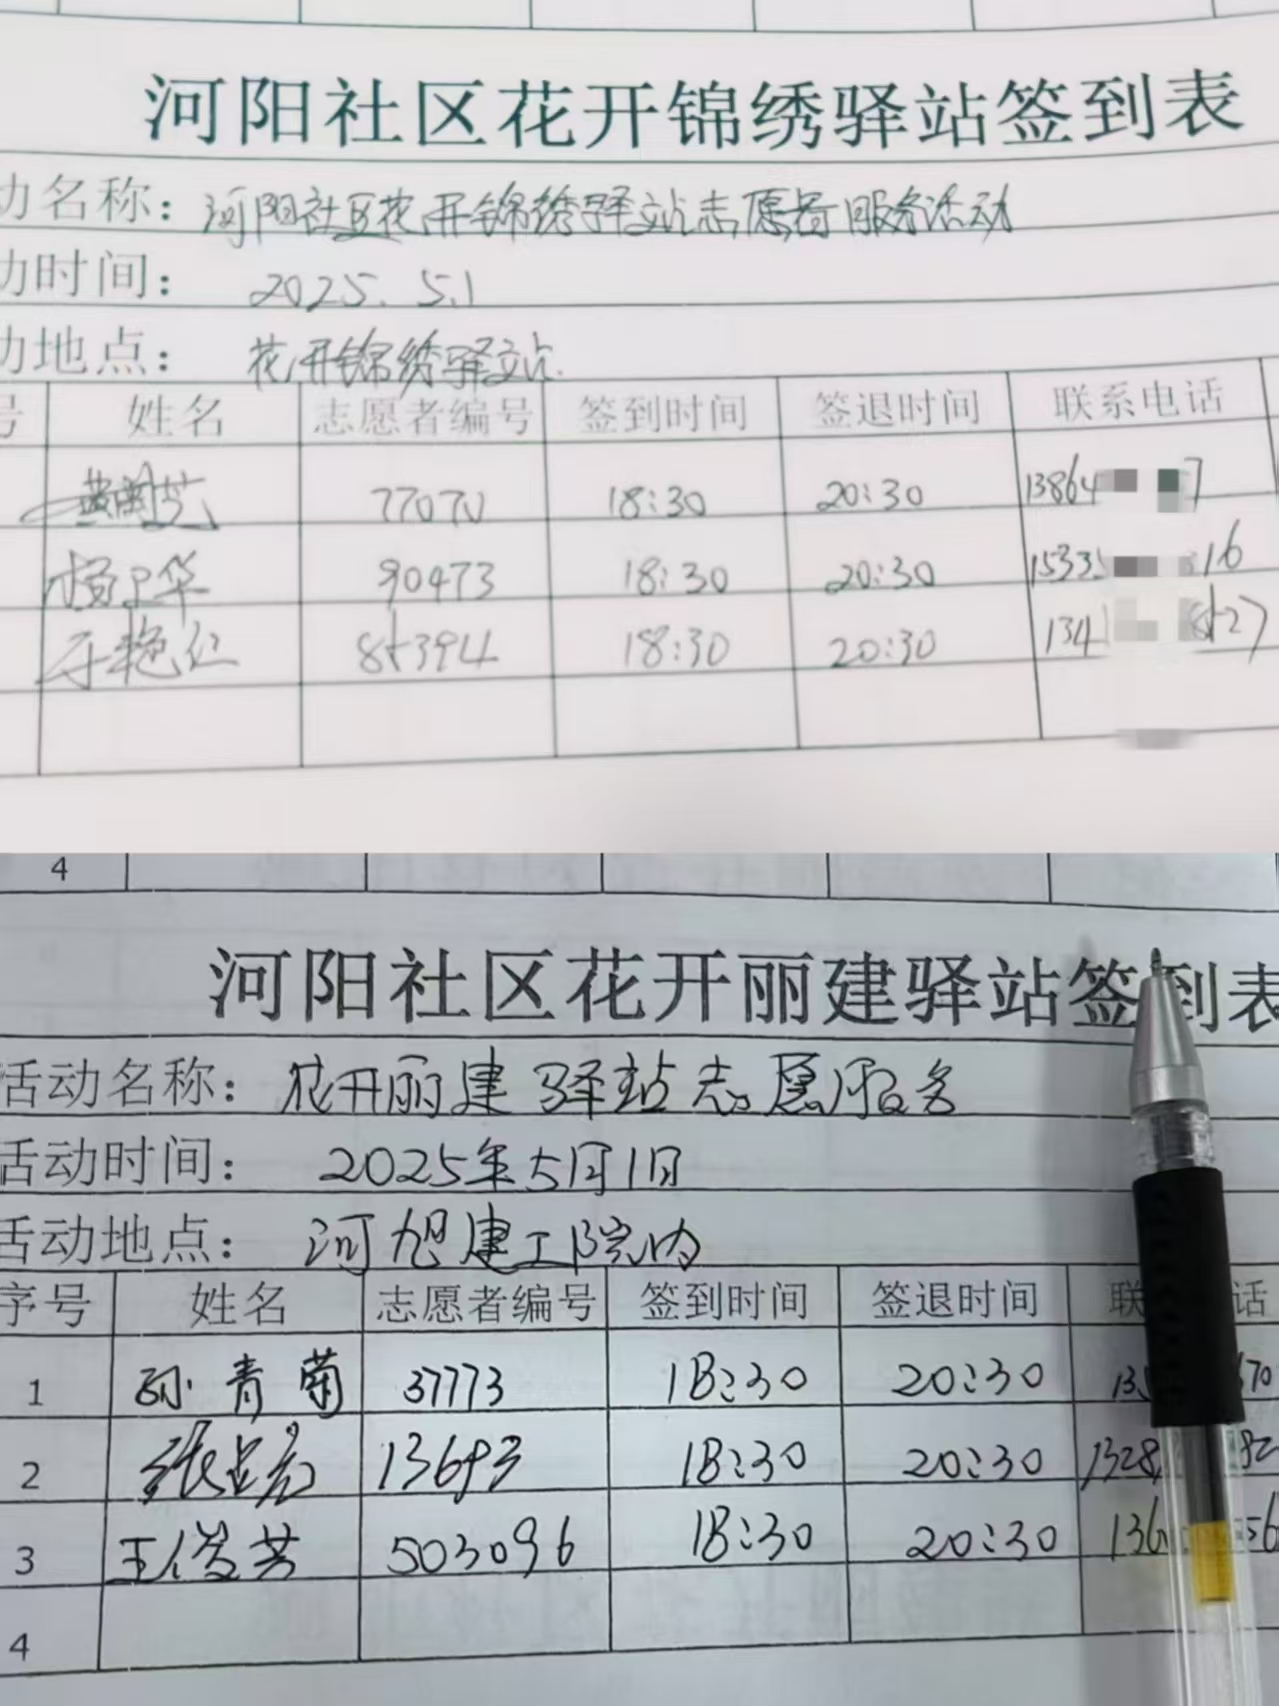 河阳社区花开锦绣驿站签到表
动名称：河阳社区花开锦绣驿站志愿者服务活动
动时间：2025.5.1
动地点：花开锦绣驿站.
号 姓名 志愿者编号 签到时间 签退时间 联系电话
黄兰芝 18:30 20:30 13864 7
杨卫华 90473 18:30 20:30 1533 16
于艳红 18:30 20:30 134 27
4
河阳社区花开丽建驿站签到表
活动名称：花开丽建驿站志愿服务
活动时间：2025年5月1日
活动地点：河旭建工院内
序号 姓名 志愿者编号 签到时间 签退时间 联 话
1 孙青菊 37773 18:30 20:30 135 670
2 13693 18:30 20:30 1328 82
3 王俊芳 503096 18:30 20:30 136 56
4